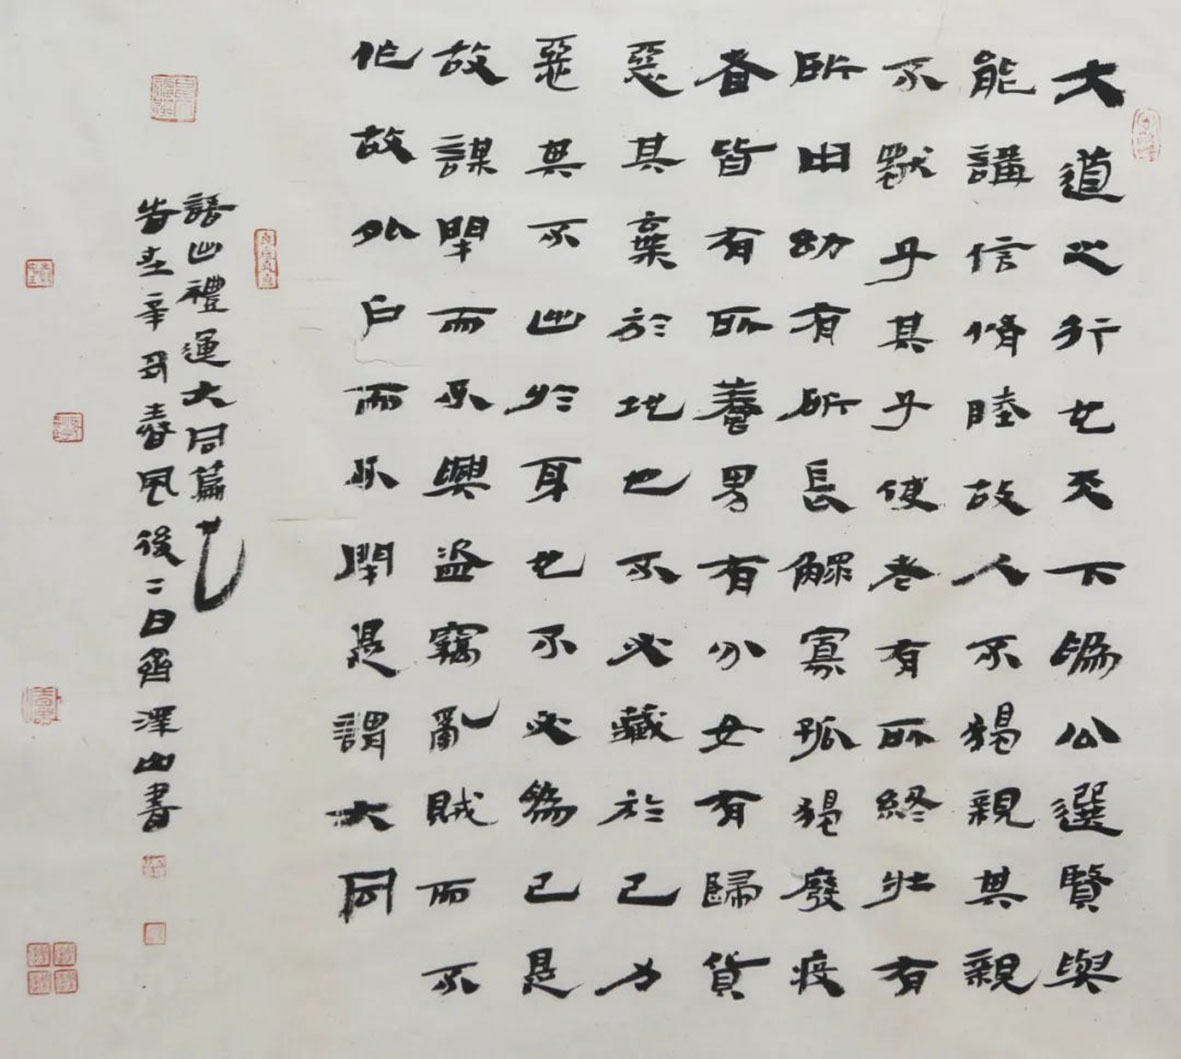 大道之行也天下為公選賢與
能講信脩睦故人不獨親其親
不獨子其子使老有所終壯有
所用幼有所長鰥寡孤獨廢疾
者皆有所養男有分女有歸貨
惡其棄於地也不必藏於己力
惡其不出於身也不必為己是
故謀閉而不興盜竊亂賊而不
作故外戶而不閉是謂大同
語出禮運大同篇也
旹在辛丑春風後二日齊澤山書